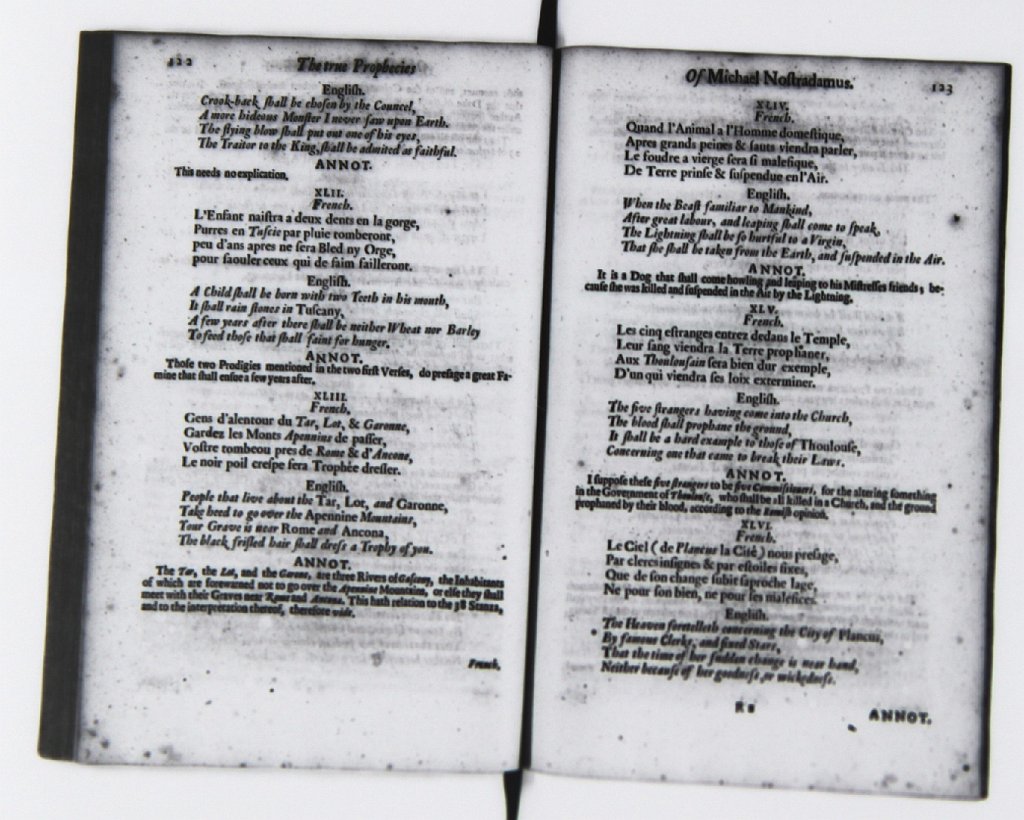 122
The true Prophecies
Engliſh.
Crook-back ſhall be choſen by the Councel,
A more hideous Monſter I never ſaw upon Earth.
The flying blow ſhall put out one of his eyes,
The Traitor to the King, ſhall be admited as faithful.
ANNOT.
This needs no explication.
XLII.
French.
L'Enfant naiſtra a deux dents en la gorge,
Purres en Tuſcie par pluie tomberont,
peu d'ans apres ne ſera Bled ny Orge,
pour ſaouler ceux qui de faim failleront.
Engliſh.
A Child ſhall be born with two Teeth in his mouth,
It ſhall rain ſtones in Tuſcany,
A few years after there ſhall be neither Wheat nor Barley
To feed thoſe that ſhall faint for hunger.
ANNOT.
Thoſe two Prodigies mentioned in the two firſt Verſes, do preſage a great Fa-
mine that ſhall enſue a few years after.
XLIII.
French.
Gens d'alentour du Tar, Lot, & Garonne,
Gardez les Monts Apennins de paſſer,
Voſtre tombeou pres de Rome & d'Ancone,
Le noir poil creſpe fera Trophée dreſſer.
Engliſh.
People that live about the Tar, Lot, and Garonne,
Take heed to go over the Apennine Mountains,
Your Grave is near Rome and Ancona,
The black friſled hair ſhall dreſs a Trophy of you.
ANNOT.
The Tar, the Lot, and the Garone, are three Rivers of Gaſcony, the Inhabitants
of which are forewarned not to go over the Apennine Mountains, or elſe they ſhall
meet with their Graves near Rome and Ancona. This hath relation to the 38 Stanza,
and to the interpretation thereof, therefore vide.
French.
Of Michael Noſtradamus.
123
XLIV.
French.
Quand l'Animal a l'Homme domeſtique,
Apres grands peines & ſauts viendra parler,
Le foudre a vierge ſera ſi malefique,
De Terre prinſe & ſuſpendue en l'Air.
Engliſh.
When the Beaſt familiar to Mankind,
After great labour, and leaping ſhall come to ſpeak,
The Lightning ſhall be ſo hurtful to a Virgin,
That ſhe ſhall be taken from the Earth, and ſuſpended in the Air.
ANNOT.
It is a Dog that ſhall come howling and leaping to his Miſtreſſes friends, be-
cauſe ſhe was killed and ſuſpended in the Air by the Lightning.
XLV.
French.
Les cinq eſtranges entrez dedans le Temple,
Leur ſang viendra la Terre prophaner,
Aux Thoulouſain ſera bien dur exemple,
D'un qui viendra ſes loix exterminer.
Engliſh.
The five ſtrangers having come into the Church,
The blood ſhall prophane the ground,
It ſhall be a hard example to thoſe of Thoulouſe,
Concerning one that came to break their Laws.
ANNOT.
I ſuppoſe theſe five ſtrangers to be five Commiſſioners, for the altering ſomething
in the Government of Thoulouſe, who ſhall be all killed in a Church, and the ground
prophaned by their blood, according to the Romiſh opinion.
XLVI.
French.
Le Ciel (de Plancus la Cité) nous preſage,
Par clercs inſignes & par eſtoiles fixes,
Que de ſon change ſubit ſaproche lage,
Ne pour ſon bien, ne pour ſes malefices.
Engliſh.
The Heaven foretelleth concerning the City of Plancus,
By famous Clerks, and fixed Stars,
That the time of her ſudden change is near hand,
Neither becauſe of her goodneſs, or wickedneſs.
ANNOT.